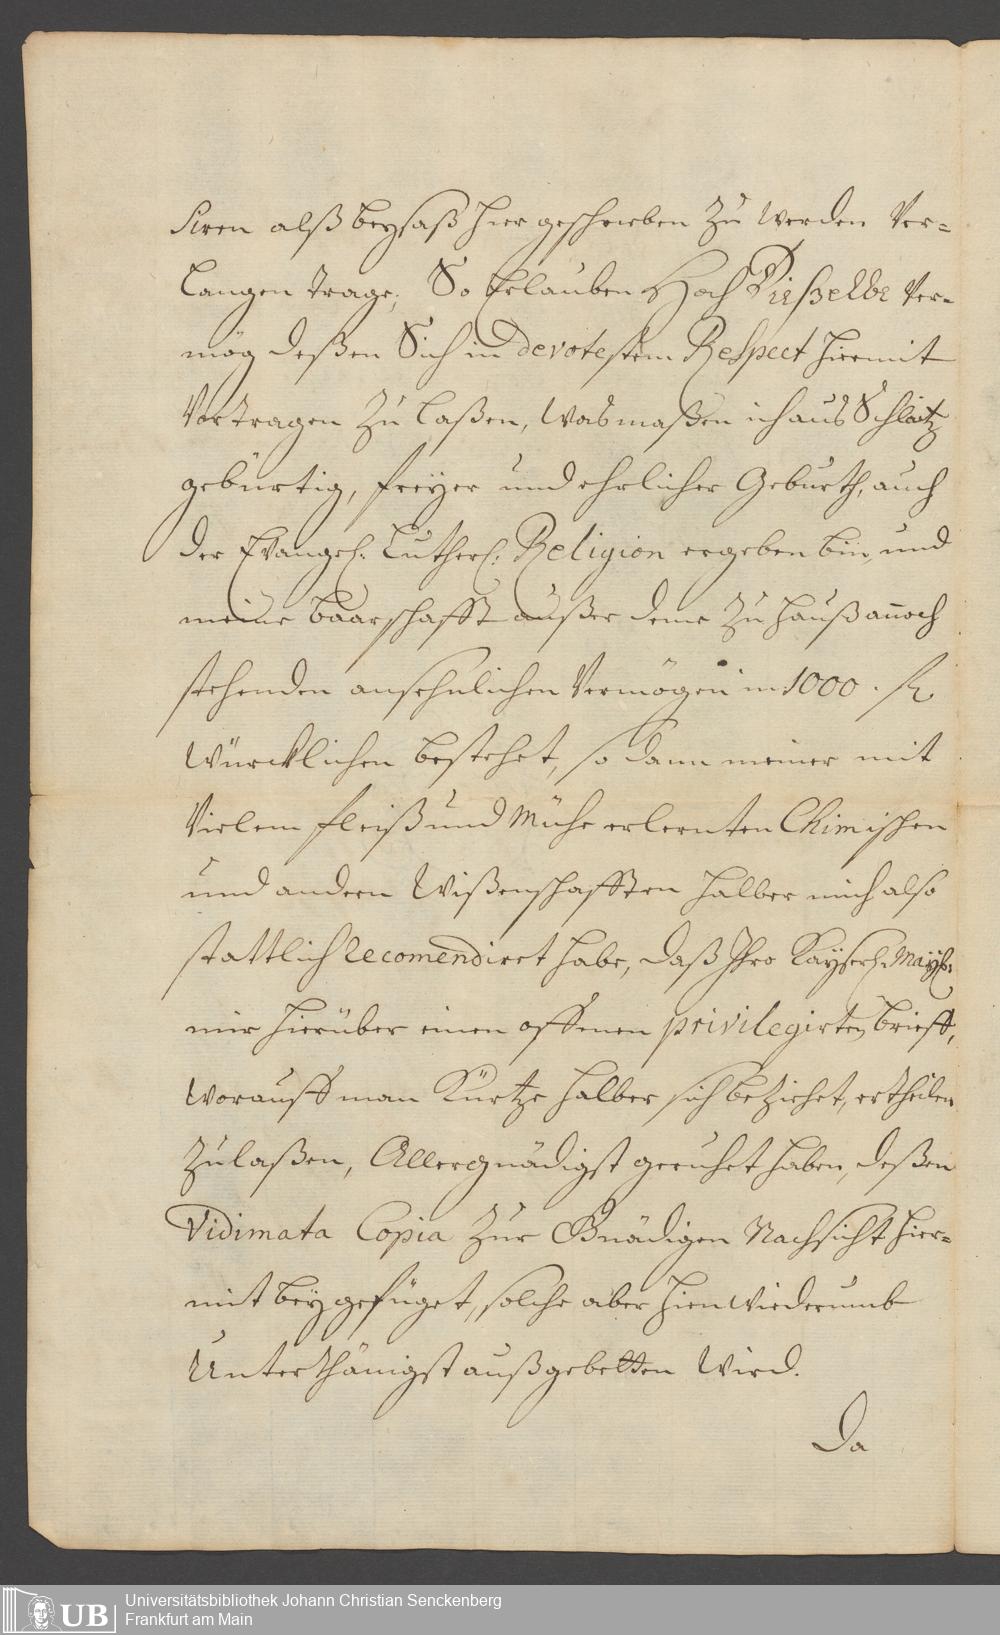 siren alß beysaß hier geschrieben zu werden Ver-
langen trage, So Erlauben Hoch Dieselbe Ver-
mög deßen Sich in devotestem Respect hiermit
Vortragen zu laßen, was maßen ich aus Schlaitz
gebürtig, freyer und ehrlicher Geburth, auch
der Evangel. Lutherl. Religion ergeben bin, und
meine baarschafft außer dem zu hauß annoch
stehenden ansehnlichen Vermögen in 1000. fl.
würcklichen bestehet, so dann meiner mit
Vielem fleiß und Mühe erlernten Chimischen
und andern Wißenschafften halber mich also
stattlich recomendiret habe, daß Ihro Kayserl. Mayst:
mir hierüber einen offenen privilegirten brieff,
worauff man Kürtze halber sich beziehet, ertheilen
zulaßen, Allergnädigst geruhet haben, deßen
Vidimata Copia zur Gnädigen Nachsicht hier-
mit beygefüget, solche aber hinwiederumb
Unterthänigst außgebetten wird.
Da
UB Universitätsbibliothek Johann Christian Senckenberg
Frankfurt am Main